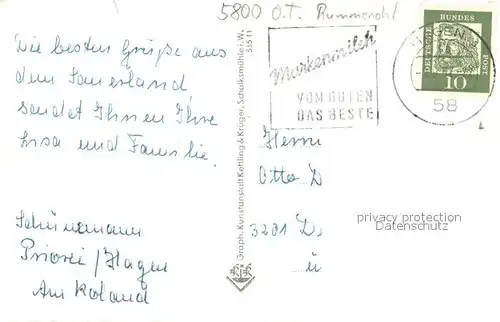 5800 O.T. Rummenohl
Die besten Grüße aus
dem Sauerland
sendet Ihnen Ihre
Lisa und Familie.
Schünemann
Priorei / Hagen
Am Roland
Graph. Kunstanstalt Kettling & Krüger, Schalksmühle i. W.
33511
Markenmilch
VOM GUTEN
DAS BESTE
HAGEN
58
DEUTSCHE BUNDESPOST
10
Herrn
Otto D
3201 D
ü
privacy protection
Datenschutz